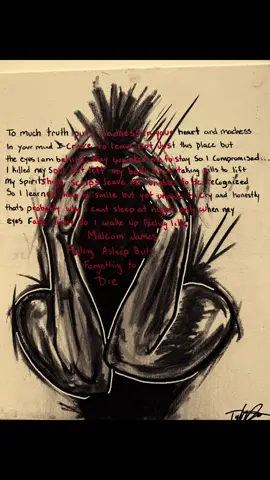 To much truth puts madness in your heart and madness
In your mind I Crave to leave not Just this place but
the eyes I am behind they wanted me to stay So I Compromised...
I killed my soul but left my body taking pills to lift
my spirits leave me unable to be recognized
So I learned how to smile but not to cry and honestly
thats probably why I cant sleep at night when my
eyes do I wake up feeling like
Malcom James
Falling Asleep But
Forgetting to
Die